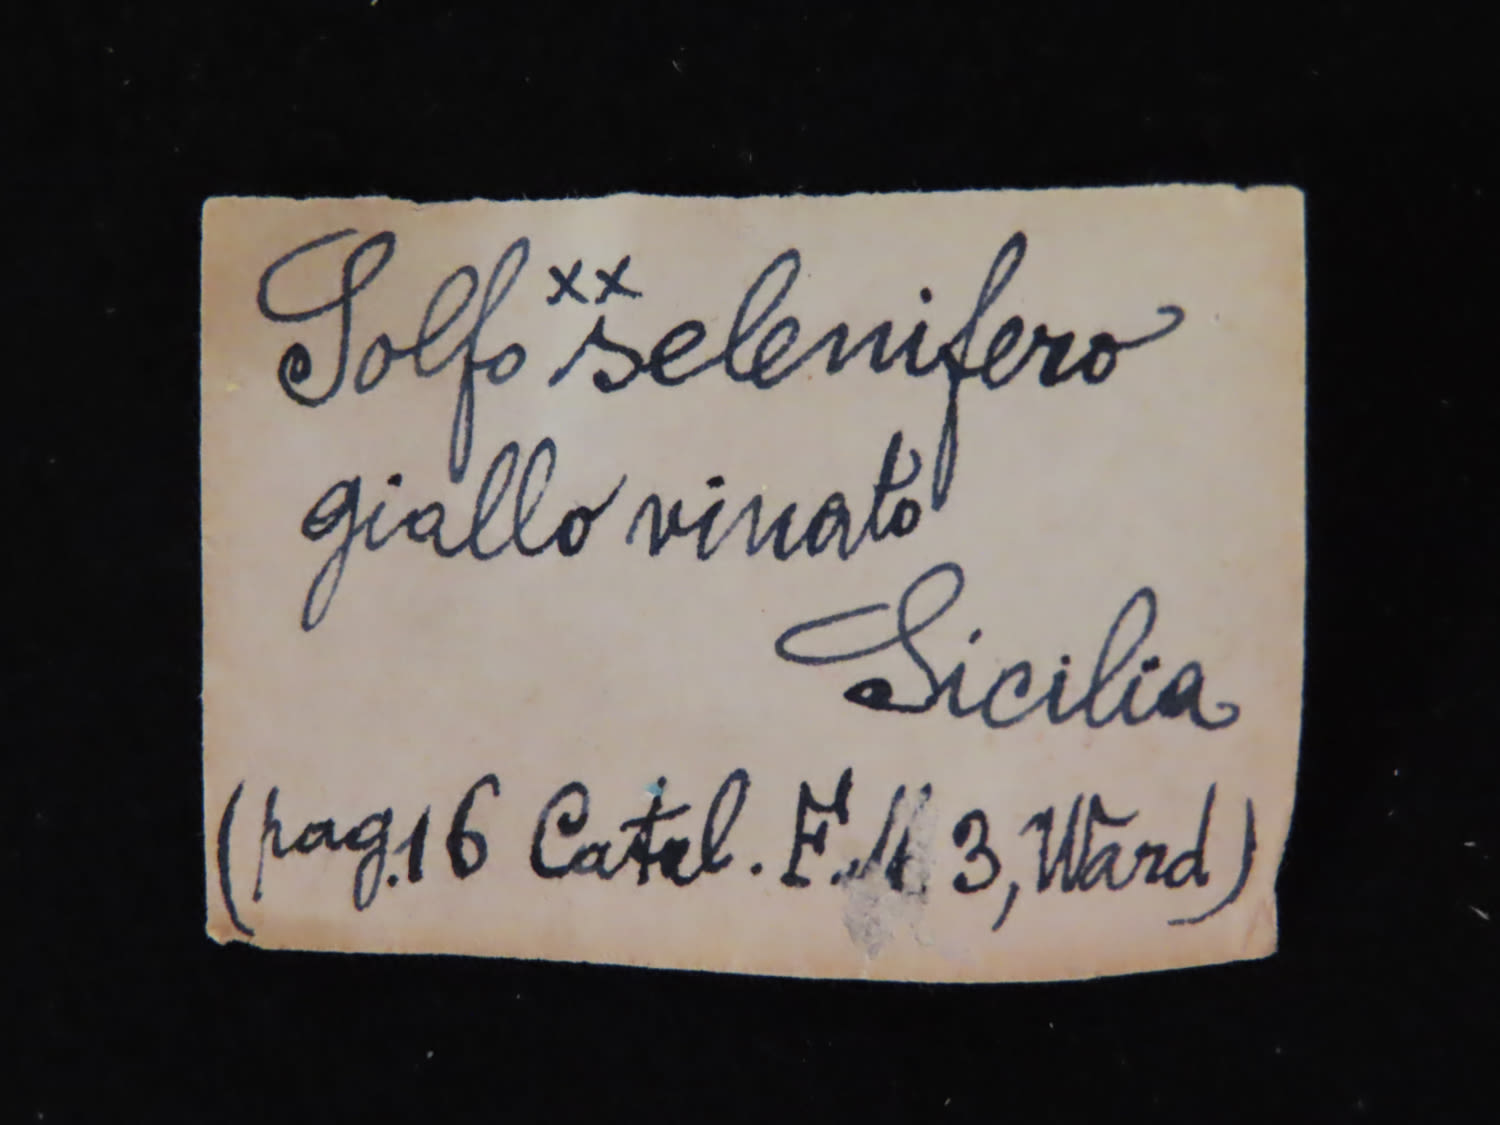 Solfo xx selenifero
giallo vinato
Sicilia
(pag. 16 Catal. F. 3, Ward)